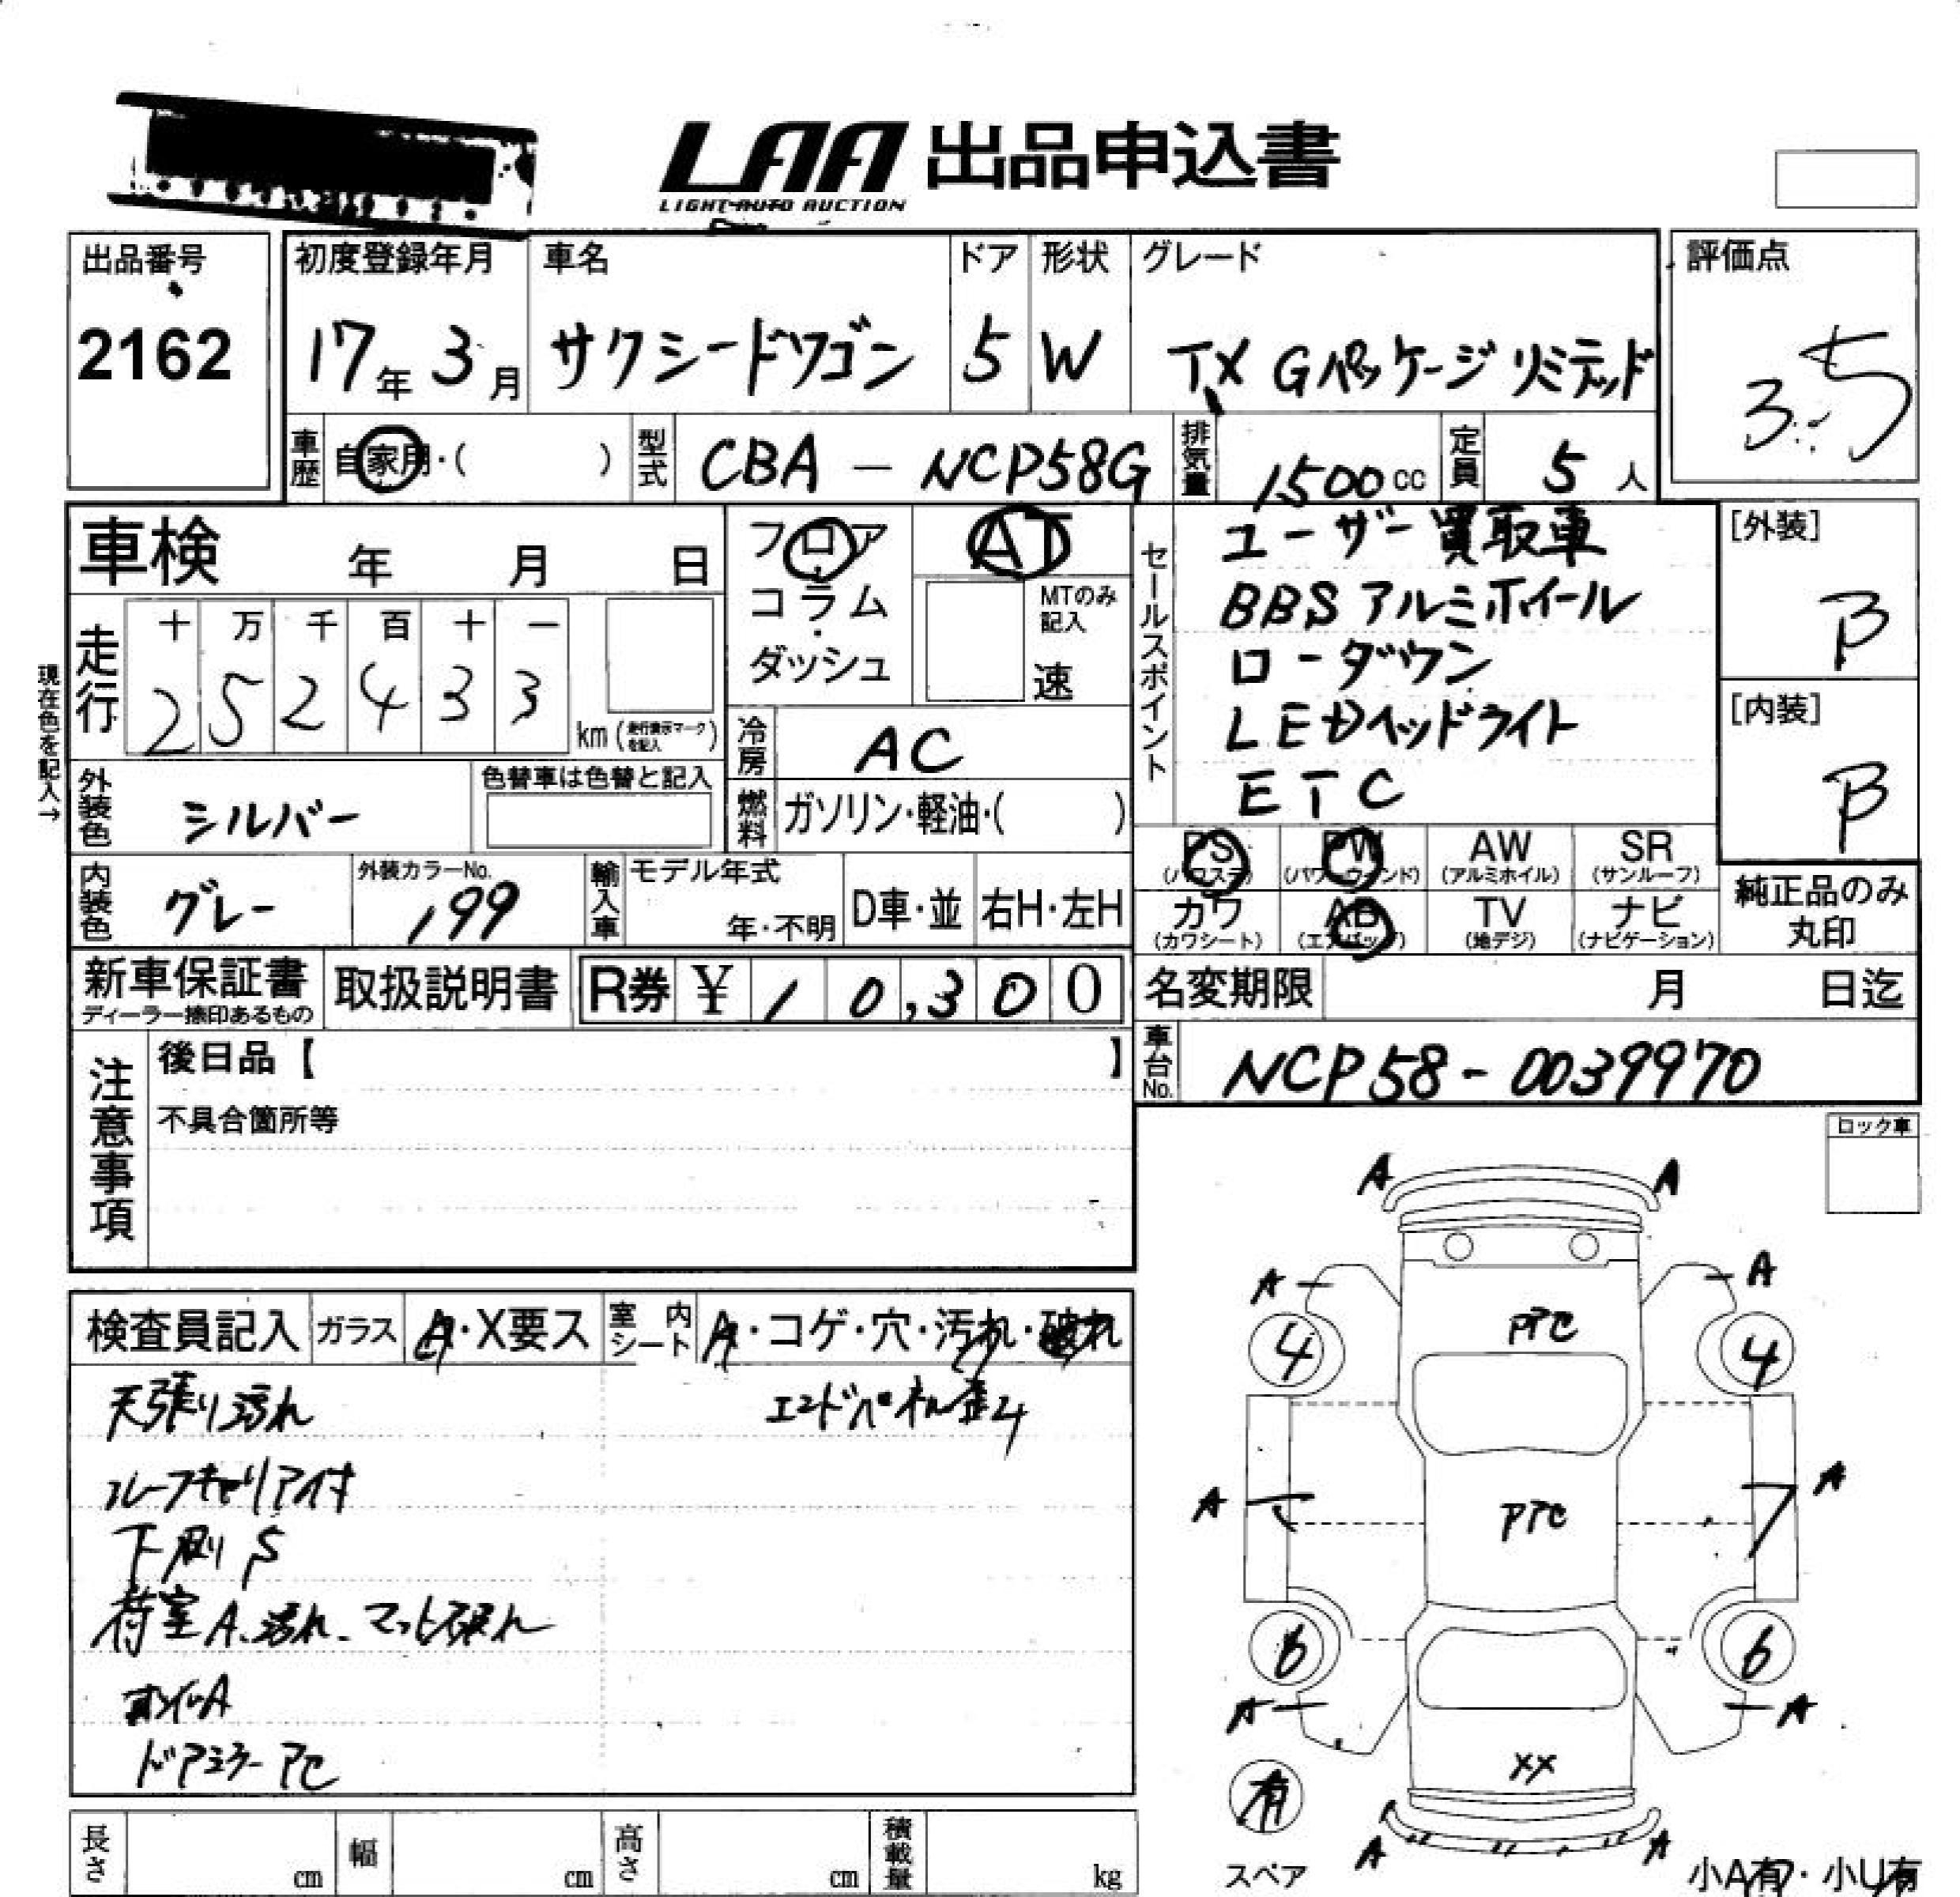 LAA 出品申込書
LIGHT AUTO AUCTION
出品番号
2162
初度登録年月
17年 3月
車名
サクシードワゴン
ドア
5
形状
W
グレード
TX Gパッケージ リミテッド
評価点
3.5
車歴 自家用・( )
型式 CBA - NCP58G
排気量 1500cc
定員 5人
車検 年 月 日
走行
十 万 千 百 十 一
2 5 2 4 3 3
km (走行表示マークを記入)
現在色を記入→
外装色 シルバー
色替車は色替と記入
内装色 グレー
外装カラーNo.
199
輸入車
モデル年式
年・不明
D車・並
右H・左H
フロア
コラム
・
ダッシュ
AT
MTのみ
記入
速
冷房 AC
燃料 ガソリン・軽油・( )
セールスポイント
ユーザー買取車
BBSアルミホイール
ローダウン
LEDヘッドライト
ETC
[外装]
B
[内装]
B
PS (パワステ)
PW (パワーウィンド)
AW (アルミホイル)
SR (サンルーフ)
カワ (カワシート)
AB (エアバッグ)
TV (地デジ)
ナビ (ナビゲーション)
純正品のみ
丸印
新車保証書
ディーラー捺印あるもの
取扱説明書
R券 ¥ 10,300
名変期限 月 日迄
車台No. NCP58-0039970
注意事項
後日品【 】
不具合箇所等
ロック車
検査員記入
ガラス A・X要ス
室内シート A・コゲ・穴・汚れ・破れ
天張り汚れ
エンドパネル歪み
ルーフキャリア付
下廻りS
荷室A、汚れ、マット破れ
ホイルA
ドアミラーPC
A A
A A
PPC
4 4
A A
PPC
6 6
A A
XX
有
スペア
A A
小A有・小U有
長さ cm
幅 cm
高さ cm
積載量 kg